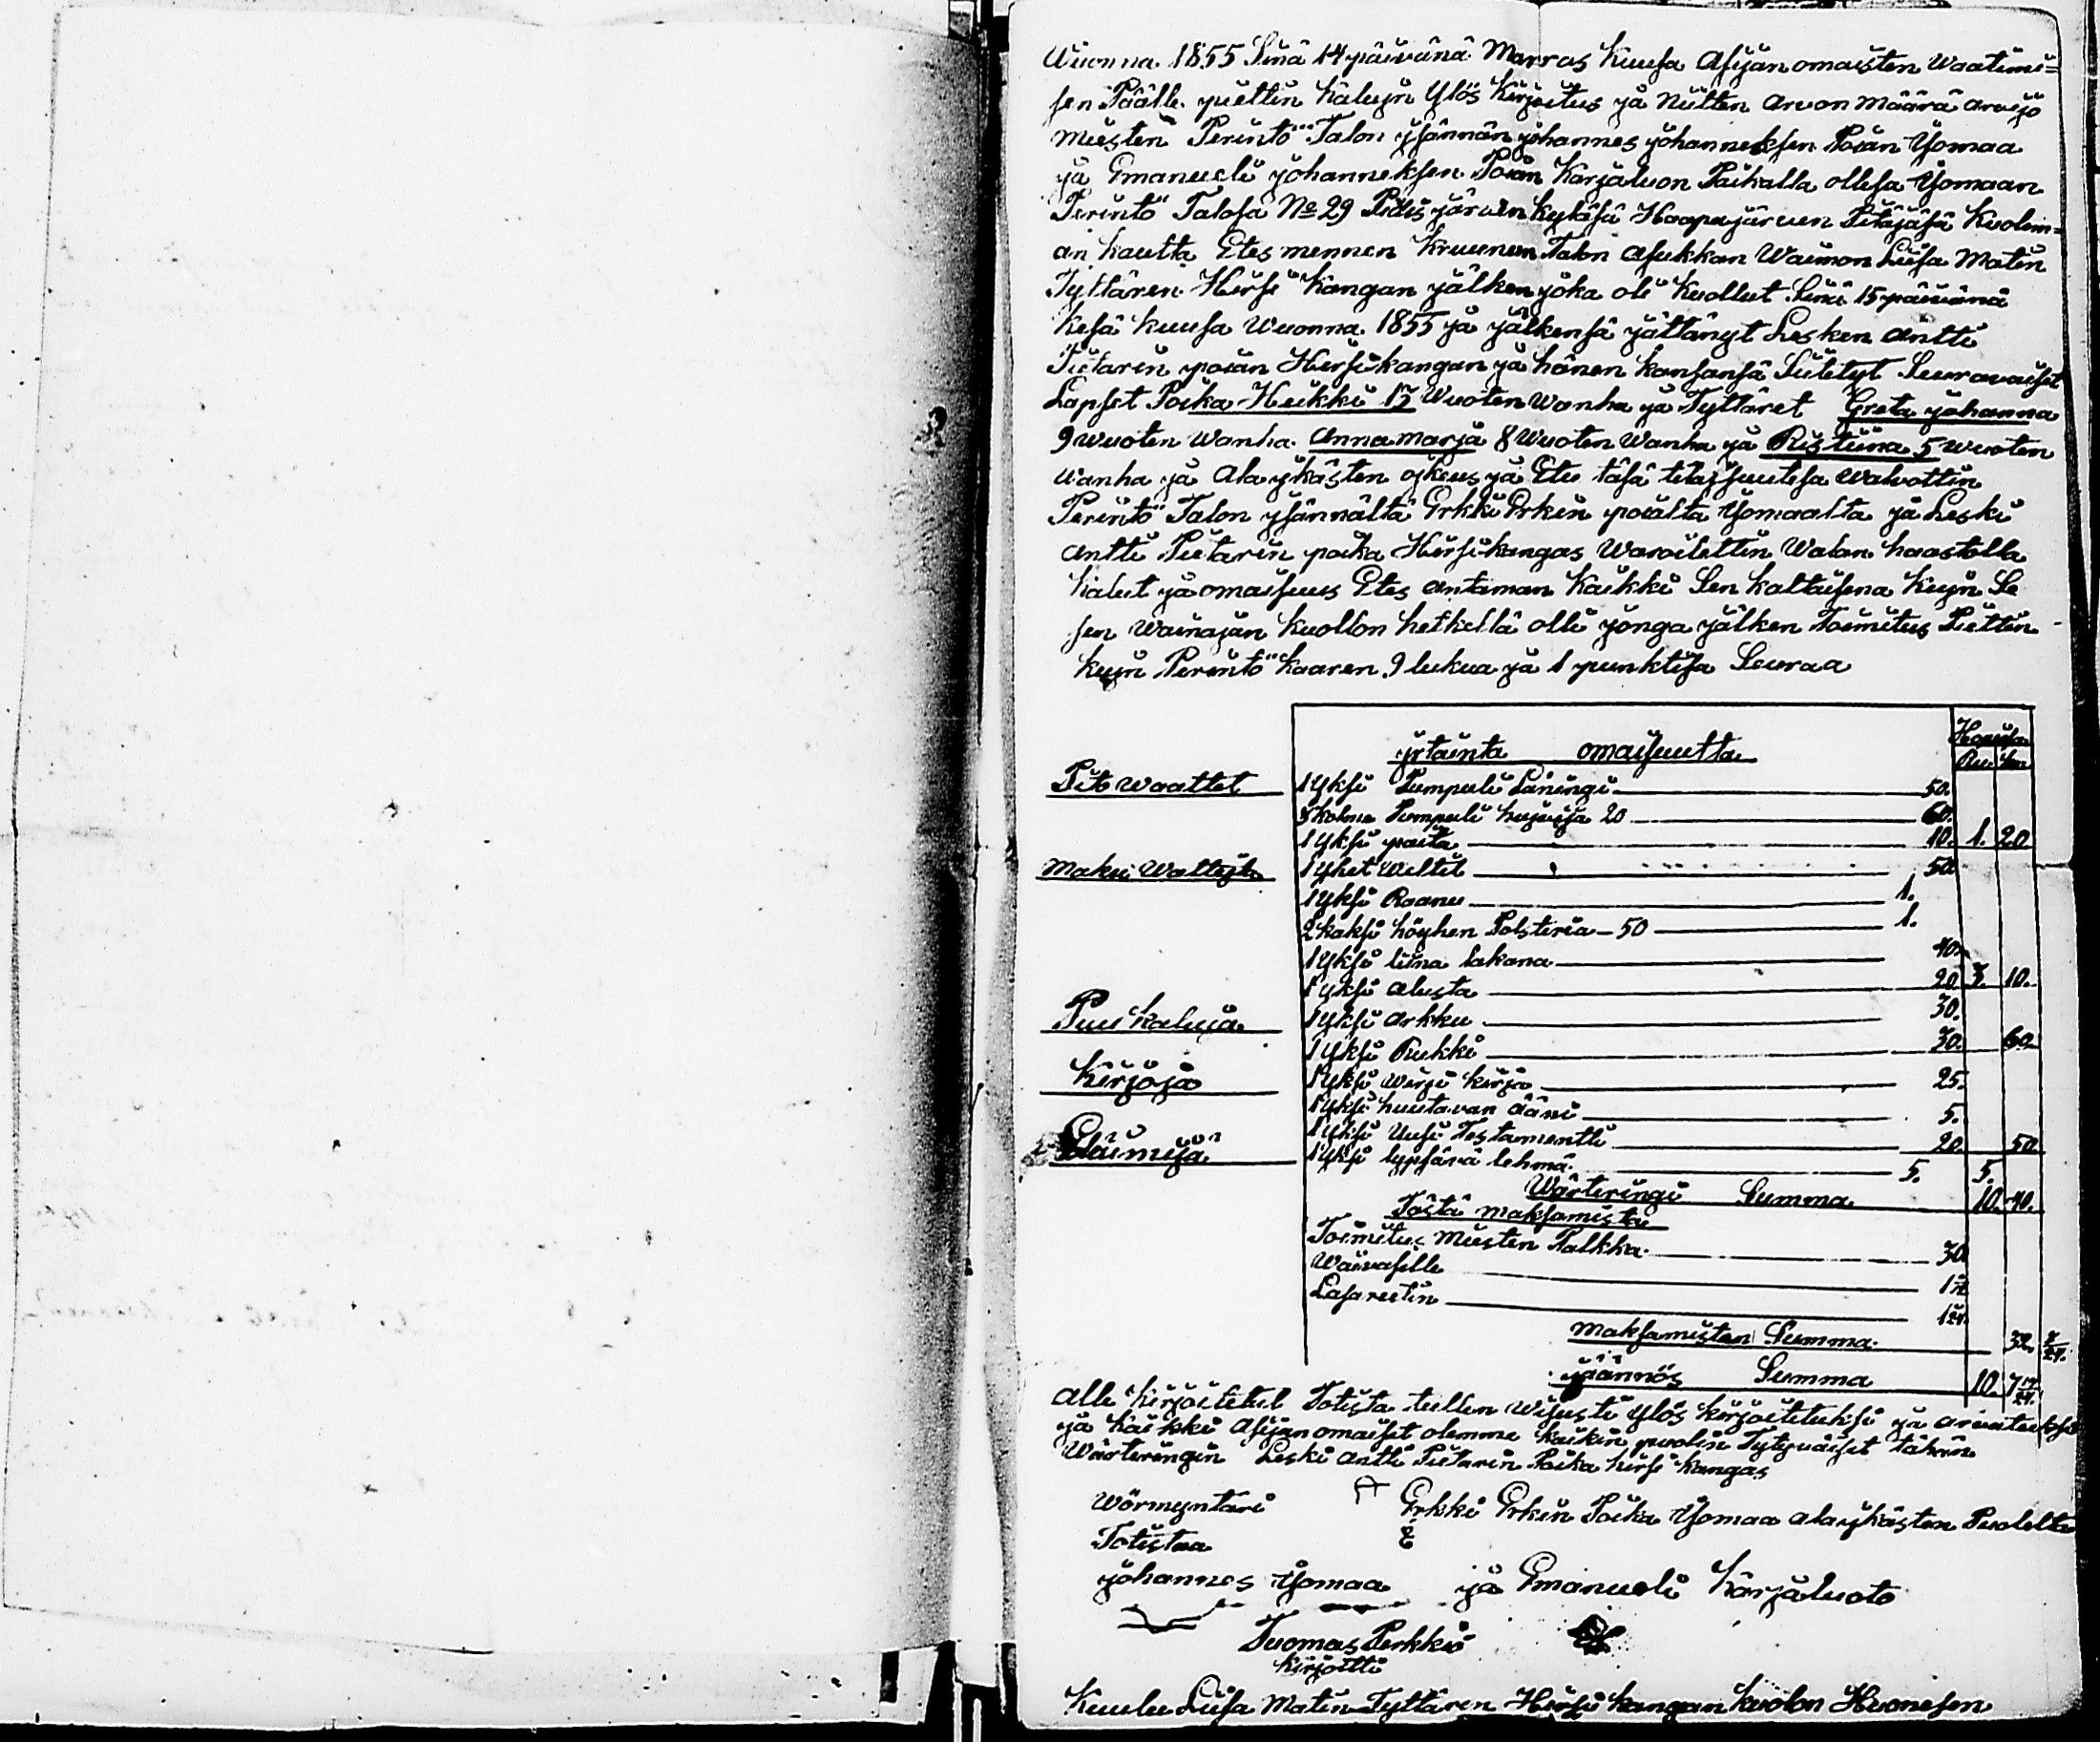 Wuonna 1855 Sinä 14 päivänä Marras Kuusa Asijan omaisten Waatimi=
sen Päälle piettin kalujn Ylös Kirjoitus ja niitten arvon määrä arvijo
miesten Perintö Talon jsännän johannes johanneksen Poian Yomaa
ja Emanueli johanneksen Poian Karjaluon Paikalla ollesa Yomaan
Perintö Talosa No 29 Pidisjärven kyläsä Haapajärven Pitäjäsä Kuolem=
an kautta Etes mennen Kruunun Talon Asukkan Waimon Liisa Matin
Tyttären Hirsi kangan jälken joka oli kuollut Sinä 15 päivänä
kesä kuusa Wuonna 1855 ja jälkensä jättänyt Lesken Antti
Pietarin poian Hirsikangan ja hänen kansansa Siitetyt Seuravaiset
Lapset Poika Heikki 15 Wuoten Wanha ja Tyttäret Greta johanna
9 wuoten Wanha Anna marja 8 Wuoten Wanha ja Ristiina 5 wuoten
wanha ja Alaykästen ojkeus ja Etu täsä tilajsuutesa walvottin
Perintö Talon jsännältä Erkki Erkin poialta Yomaalta ja Leski
Antti Pietarin poika Hirsikangas Waroitettin Walan haastolla
kalut ja omaisuus Etes antaman Kaikki Sen kaltaisena kujn Se
sen Wainajan Kuollon hetkellä olli jonga jälken Toimitus Piettin
kujn Perintö kaaren 9 lukua ja 1 punktisa Seuraa
jrtainta omaisuutta Hopiata
Ru. Ko.
Pito waattet 1 Yksi Pumpuli Läningi 50.
3 kolme Pumpuli hujvija 20 60.
1 yksi paita 10. 1. 20
Maku Wattejta 1 yhet weltit 50
1 yksi Raanu 1.
2 kaksi höyhen Polsteria - 50 1.
1 yksi liina lakana 40.
1 yksi alusta 20 3. 10.
Puu kaluja 1 yksi arkku 30.
1 yksi Rukki 30. 60.
Kirjoja 1 yksi wirsi kirja 25.
1 yksi huutavan ääni 5.
1 yksi Uusi Testamentti 20. 50.
Eläimijä 1 yksi lypsävä lehmä 5. 5.
Wärteringi Summa 10. 40.
Tästä maksamista
Toimitus Miesten Palkka 30
Waivasille 1
Lasarettin 1
maksamisten Summa 32.
jäännös Summa 10. 7 17/24
Alle kirjoitetut Totista tullen wisusti ylös kirjoitetuksi ja arvatuksi
ja kaikki Asijan omaiset olemme kaikin puolin Tytyväiset tähän
Wärteringin Leski Antti Pietarin Poika hirsi kangas
Wörmyntäri Erkki Erkin Poika Yomaa alaykästen Puolelta
Totistaa
johannes Yomaa ja Emanueli Karjaluoto
Tuomas Perkkiö
kirjoitti
Kuulu Liisa Matin Tyttären Hirsi kangan kuolon Huonesen